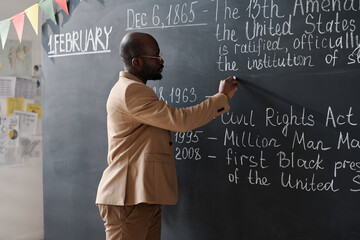 1 FEBRUARY
DEC 6, 1865 - The 13th Amendment
the United States
is ratified, officially
the institution of s
28 1963
Civil Rights Act
1995 - Million Man Ma
2008 - first Black pres
of the United S